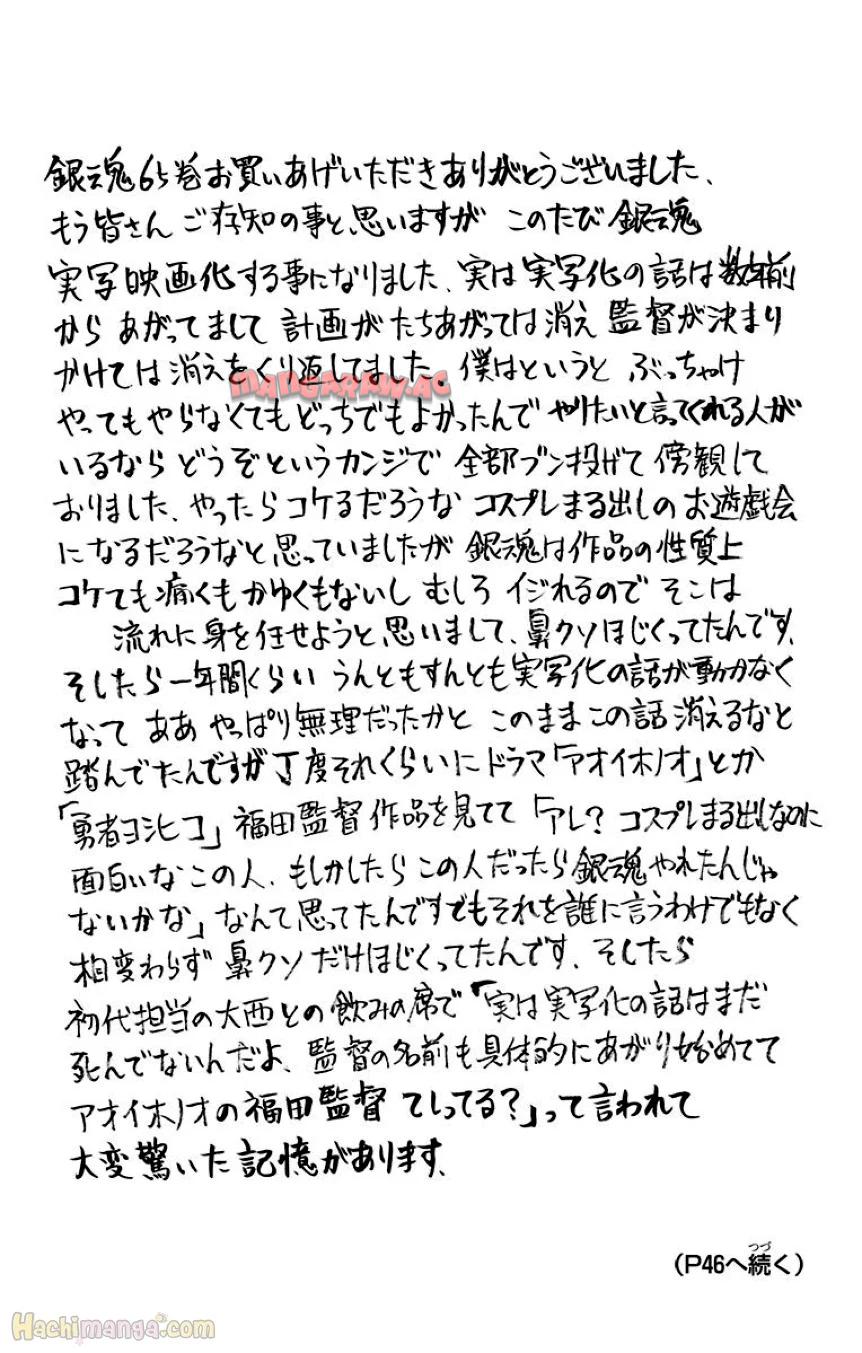 銀魂65巻お買いあげいただきありがとうございました、
もう皆さん ご存知の事と思いますが このたび 銀魂
実写映画化する事になりました、実は 実写化の話は数年前
から あがってまして 計画が たちあがっては消え 監督が決まり
かけては 消えをくり返してました。僕はというと ぶっちゃけ
MANGARAW.AC
やってもやらなくてもどっちでもよかったんで やりたいと言ってくれる人が
いるなら どうぞというカンジで 全部ブン投げて 傍観して
おりました、やったら コケるだろうな コスプレまる出しの お遊戯会
になるだろうなと思っていましたが 銀魂は作品の性質上
コケても痛くもかゆくもないし むしろ イジれるので そこは
流れに身を任せようと思いまして、鼻クソほじくってたんです、
そしたら一年間くらい うんともすんとも実写化の話が動かなく
なって ああ やっぱり無理だったかと このままこの話 消えるなと
踏んでたんですが丁度それくらいにドラマ「アオイホノオ」とか
「勇者ヨシヒコ」福田監督作品を見てて「アレ? コスプレまる出しなのに
面白いな この人、もしかしたら この人だったら銀魂やれたんじゃ
ないかな」なんて思ってたんですでもそれを誰に言うわけでもなく
相変わらず 鼻クソだけほじくってたんです、そしたら
初代担当の大西との飲みの席で「実は実写化の話はまだ
死んでないんだよ、監督の名前も具体的にあがり始めてて
アオイホノオの福田監督 てしってる?」って言われて
大変驚いた記憶があります、
(P46へ続く)
つづ
Hachimanga.com